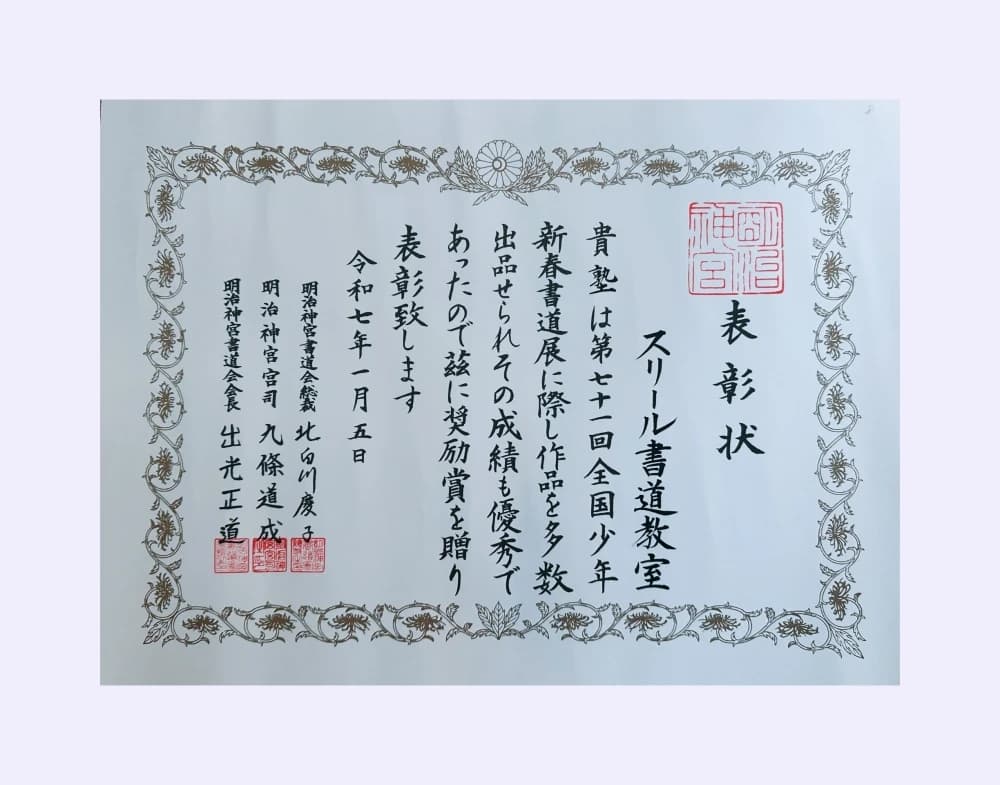 明治神宮
表彰状
スリール書道教室
貴塾は第七十一回全国少年
新春書道展に際し作品を多数
出品せられその成績も優秀で
あったので茲に奨励賞を贈り
表彰致します
令和七年一月五日
明治神宮書道会総裁 北白川慶子
明治神宮宮司 九條道成
明治神宮書道会会長 出光正道